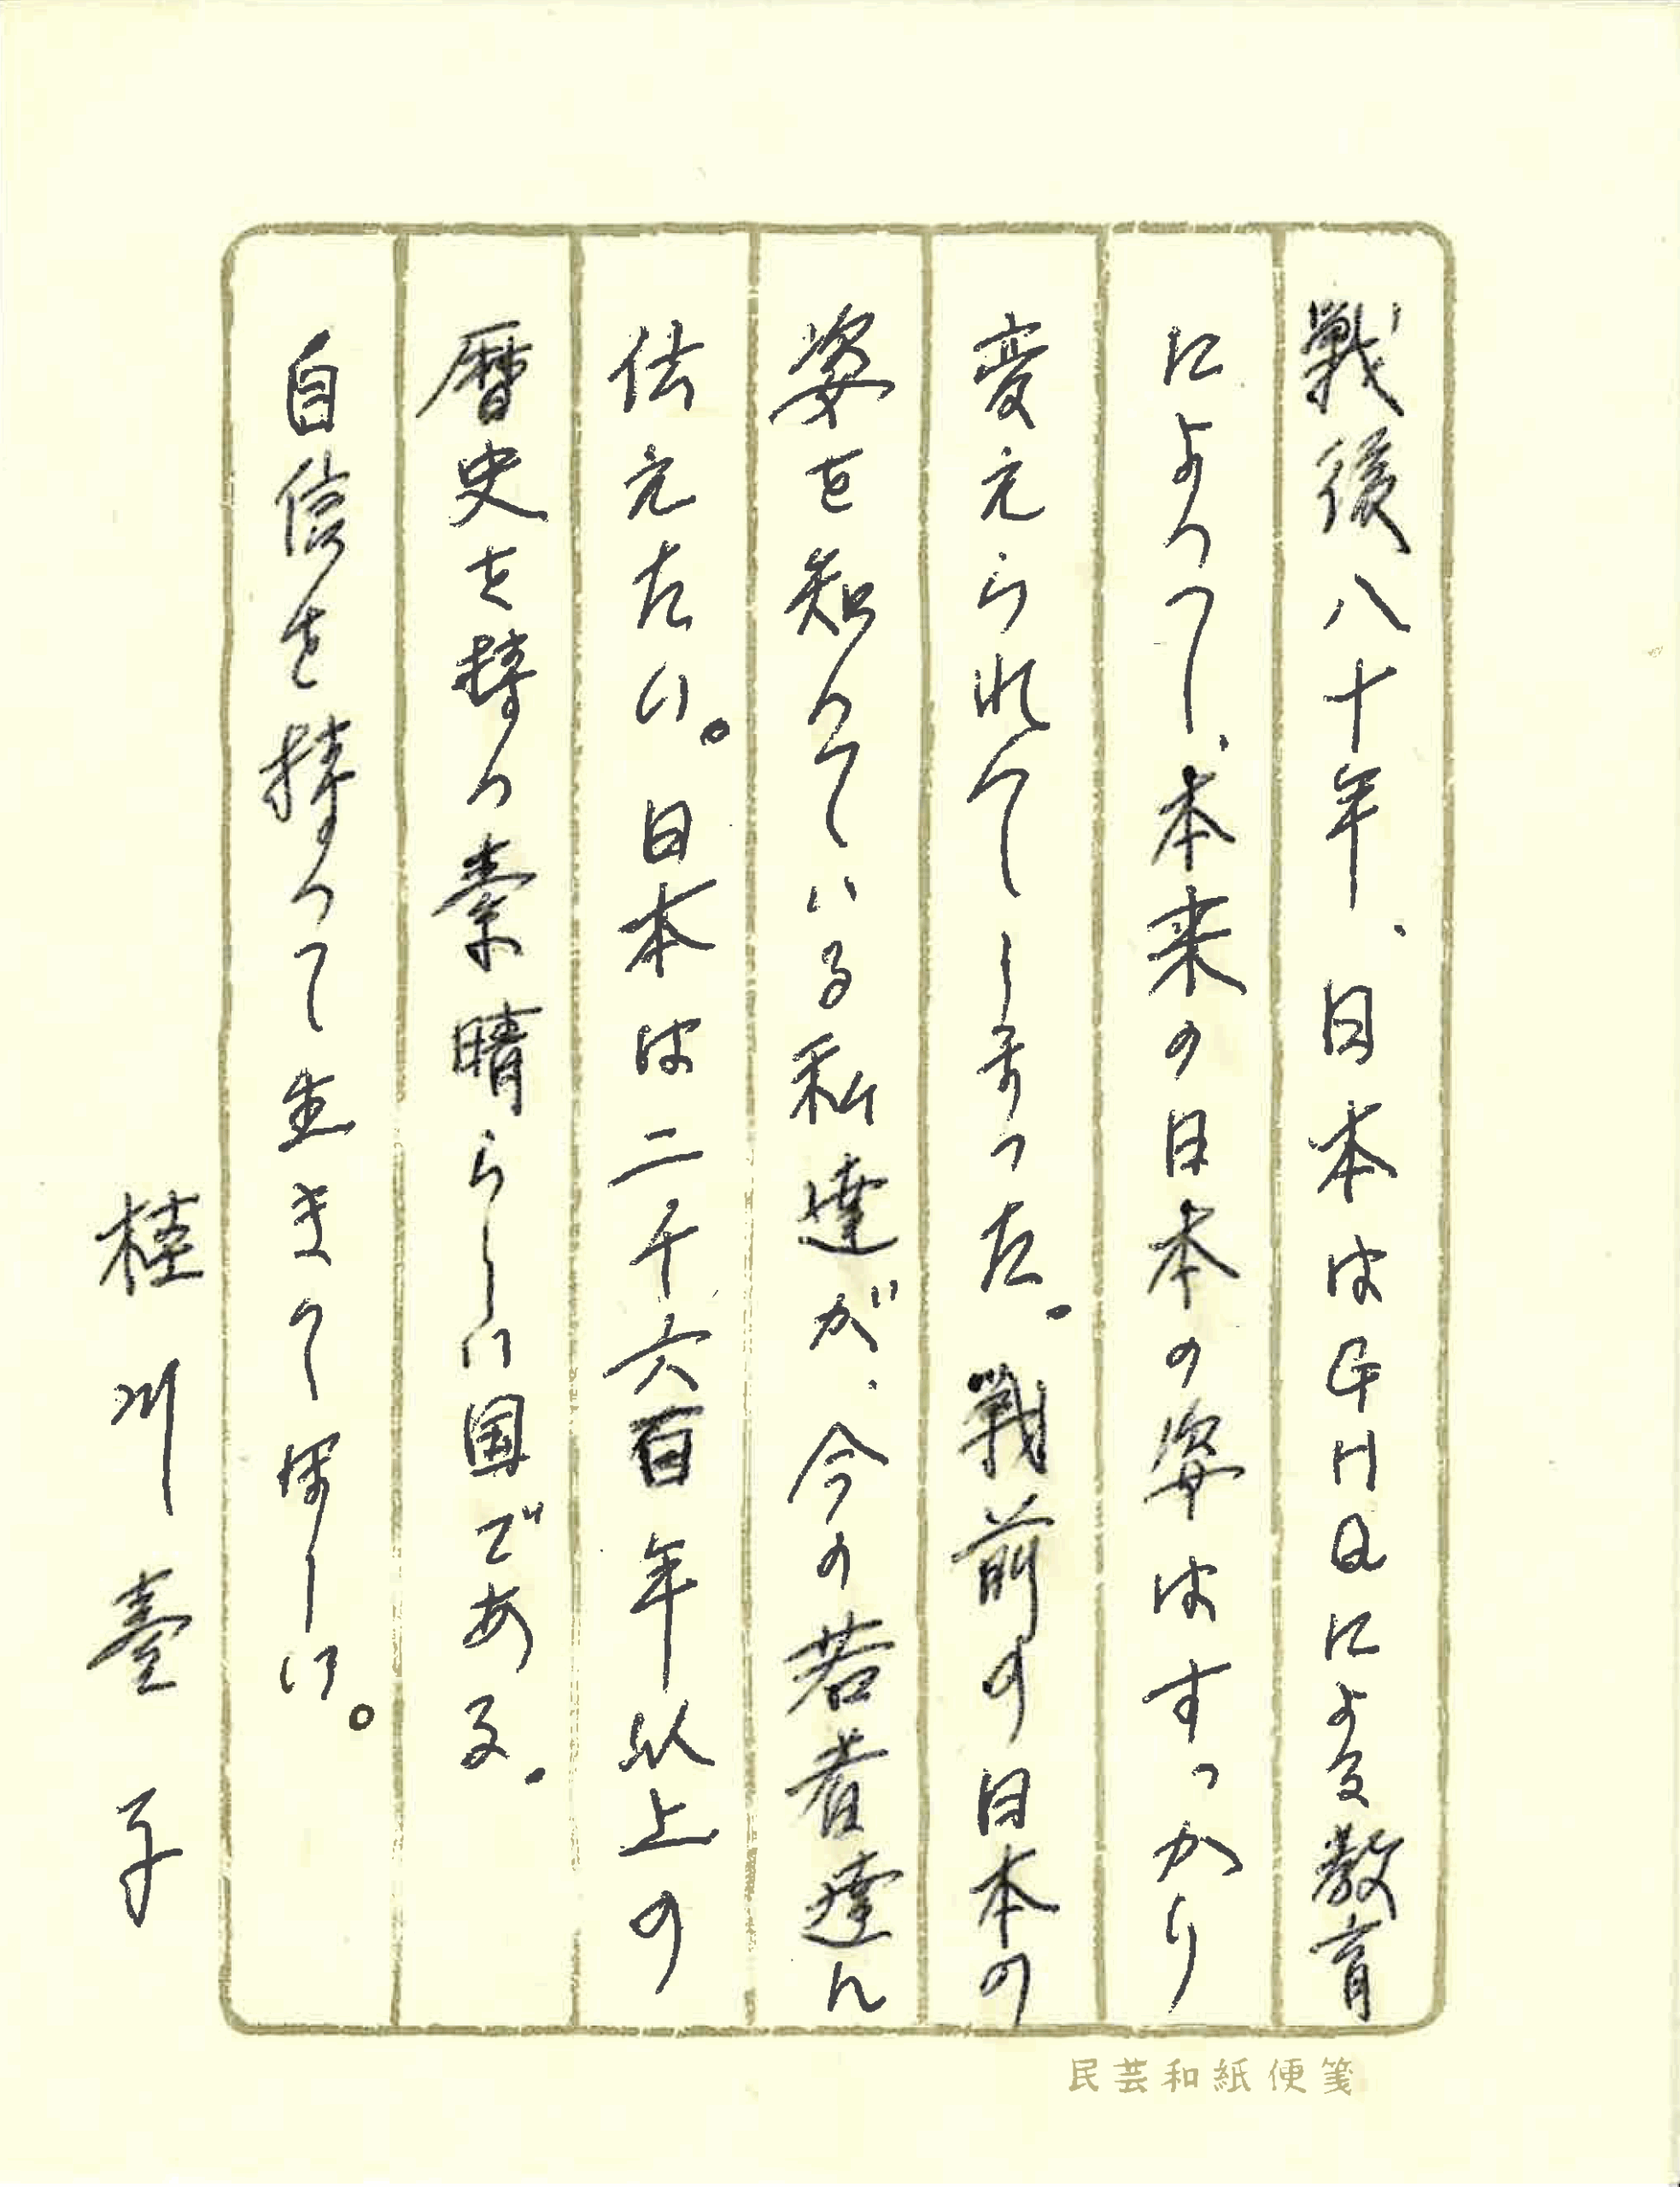 戦後八十年、日本はGHQによる教育
によって、本来の日本の姿はすっかり
変えられてしまった。戦前の日本の
姿を知っている私達が、今の若者達に
伝えたい。日本は二千六百年以上の
歴史を持つ素晴らしい国である。
自信を持って生きてほしい。
桂川臺子
民芸和紙便箋